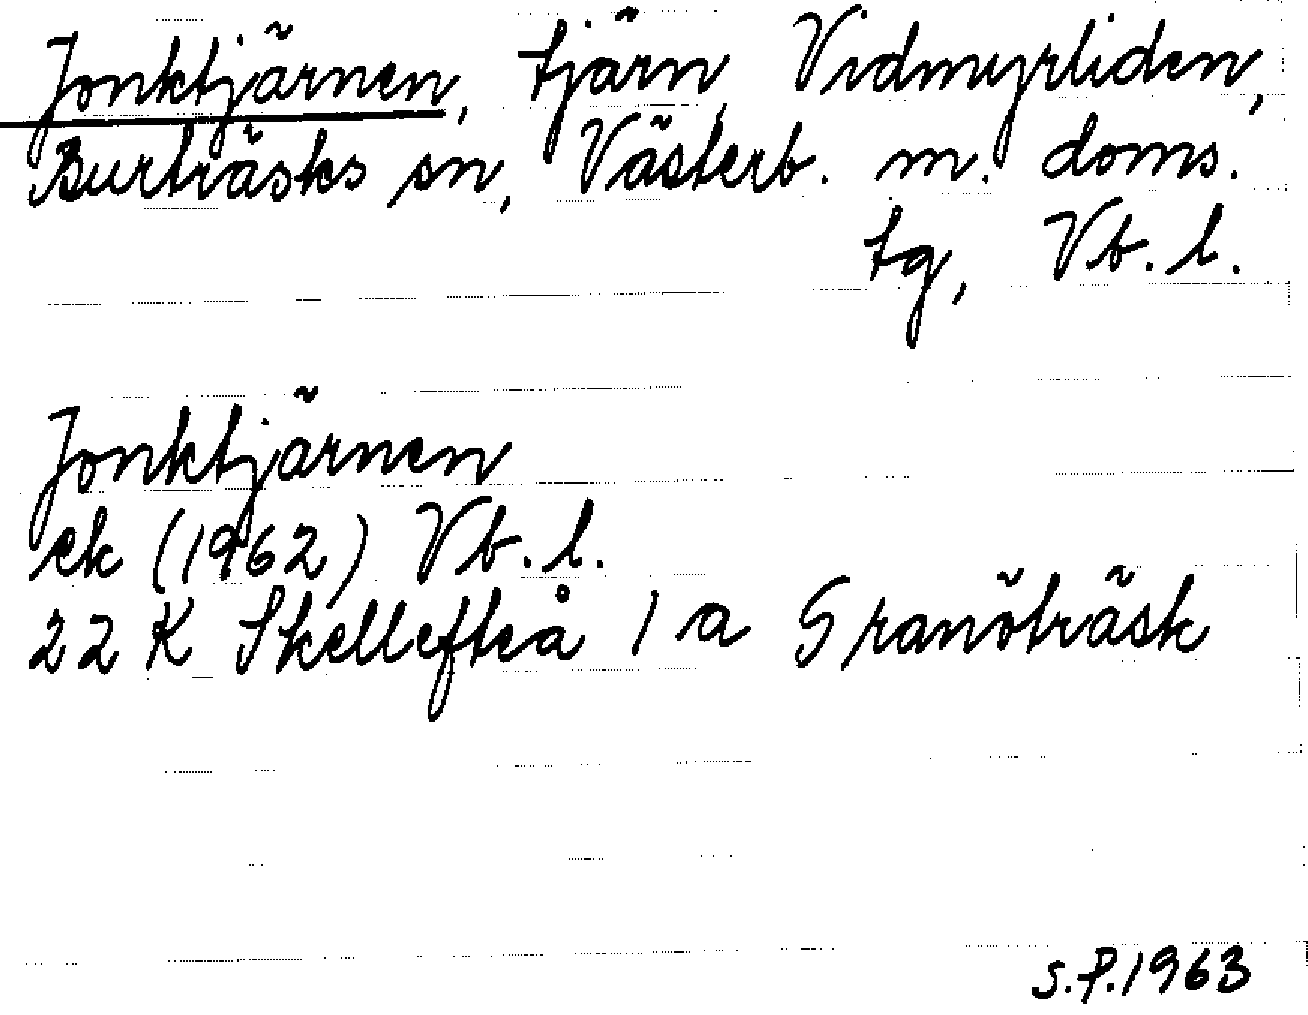 Jonktjärnen, tjärn, Vidmyrliden,
Burträsks sn, Västerb. m. doms.
tg, Vb. l.
Jonktjärnen
ek (1962) Vb. l.
22 K Skellefteå 1 a Granöträsk
S.P. 1963